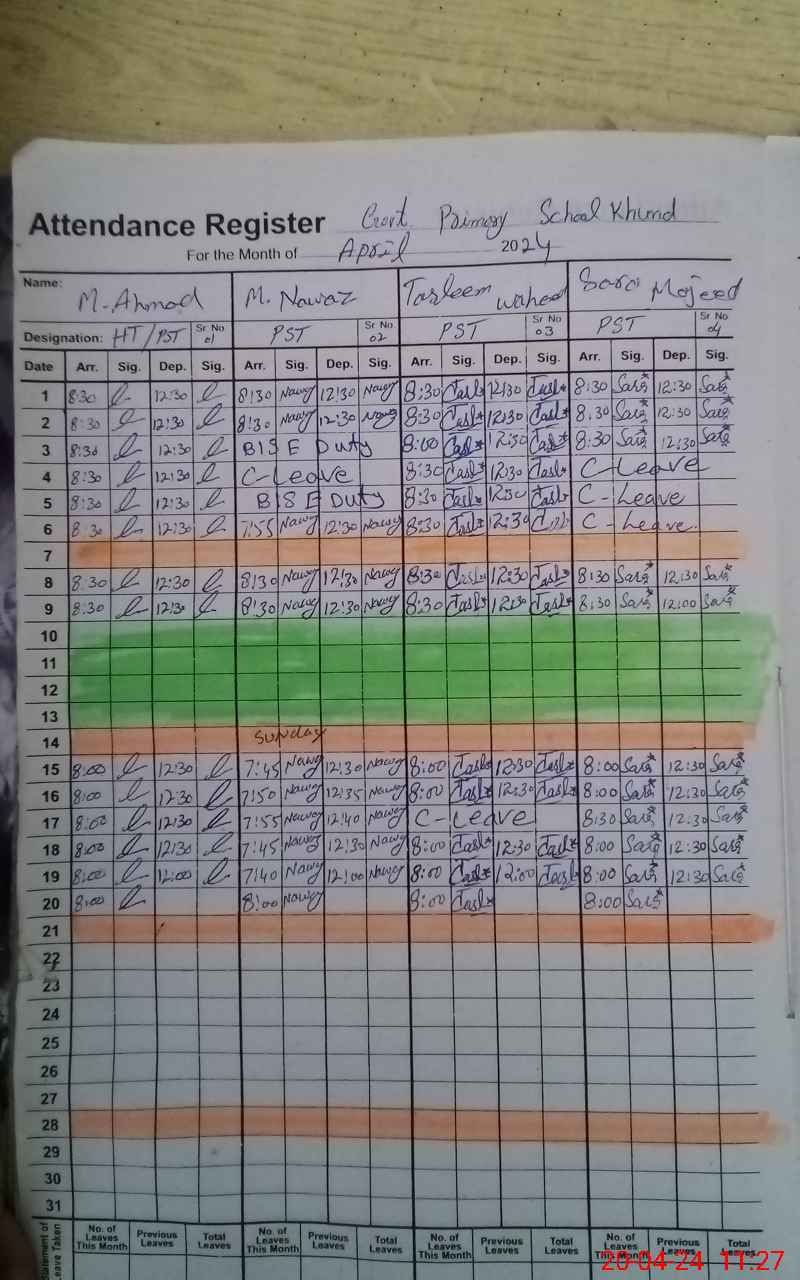 Attendance Register Govt Primary School Khund
For the Month of April 2024
Name: M. Ahmad M. Nawaz Tasleem waheed Sara Majeed
Designation: HT/PST Sr No 01 PST Sr No 02 PST Sr No 03 PST Sr No 04
Date Arr. Sig. Dep. Sig. Arr. Sig. Dep. Sig. Arr. Sig. Dep. Sig. Arr. Sig. Dep. Sig.
1 8:30 12:30 8:30 Nawaz 12:30 Nawaz 8:30 Tasl 12:30 Tasl 8:30 Sara 12:30 Sara
2 8:30 12:30 8:30 Nawaz 12:30 Nawaz 8:30 Tasl 12:30 Tasl 8:30 Sara 12:30 Sara
3 8:30 12:30 BISE Duty 8:00 Tasl 12:30 Tasl 8:30 Sara 12:30 Sara
4 8:30 12:30 C-Leave 8:30 Tasl 12:30 Tasl C-Leave
5 8:30 12:30 BISE Duty 8:30 Tasl 12:30 Tasl C-Leave
6 8:30 12:30 7:55 Nawaz 12:30 Nawaz 8:30 Tasl 12:30 C-Leave.
7
8 8:30 12:30 8:30 Nawaz 12:30 Nawaz 8:30 Tasl 12:30 Tasl 8:30 Sara 12:30 Sara
9 8:30 12:30 8:30 Nawaz 12:30 Nawaz 8:30 Tasl 12:30 Tasl 8:30 Sara 12:00 Sara
10
11
12
13
14 Sunday
15 8:00 12:30 7:45 Nawaz 12:30 Nawaz 8:00 Tasl 12:30 Tasl 8:00 Sara 12:30 Sara
16 8:00 12:30 7:50 Nawaz 12:35 Nawaz 8:00 Tasl 12:30 Tasl 8:00 Sara 12:30 Sara
17 8:00 12:30 7:55 Nawaz 12:40 Nawaz C-Leave 8:30 Sara 12:30 Sara
18 8:00 12:30 7:45 Nawaz 12:30 Nawaz 8:00 Tasl 12:30 Tasl 8:00 Sara 12:30 Sara
19 8:00 12:00 7:40 Nawaz 12:00 Nawaz 8:00 Tasl 12:00 Tasl 8:00 Sara 12:30 Sara
20 8:00 8:00 Nawaz 8:00 Tasl 8:00 Sara
21
22
23
24
25
26
27
28
29
30
31
No. of Leaves This Month Previous Leaves Total Leaves No. of Leaves This Month Previous Leaves Total Leaves No. of Leaves This Month Previous Leaves Total Leaves No. of Leaves This Month Previous Leaves Total Leaves
20-04-24 11:27